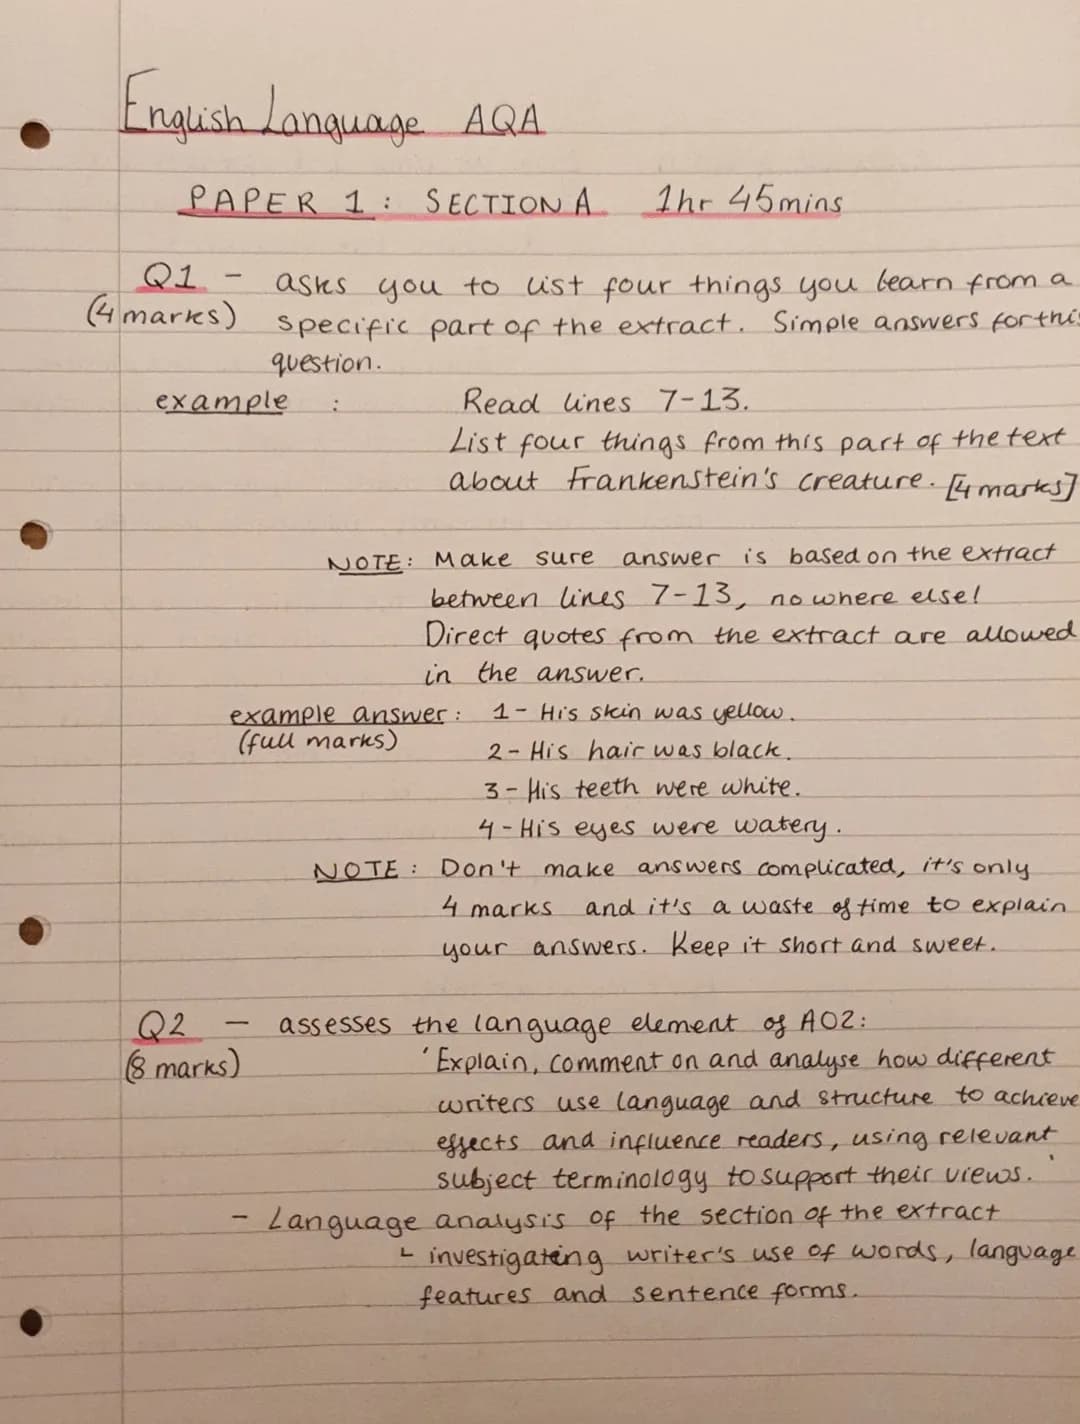 English Language AQA
PAPER 1: SECTION A 1hr 45mins
Q1 - asks you to list four things you learn from a
(4 marks) specific part of the extract. Simple answers for this
question.
example : Read lines 7-13.
List four things from this part of the text
about Frankenstein's creature. [4 marks]
NOTE: Make sure answer is based on the extract
between lines 7-13, no where else!
Direct quotes from the extract are allowed
in the answer.
example answer: 1- His skin was yellow.
(full marks) 2- His hair was black.
3- His teeth were white.
4- His eyes were watery.
NOTE: Don't make answers complicated, it's only
4 marks and it's a waste of time to explain
your answers. Keep it short and sweet.
Q2 - assesses the language element of AO2:
(8 marks) 'Explain, comment on and analyse how different
writers use language and structure to achieve
effects and influence readers, using relevant
subject terminology to support their views.'
- Language analysis of the section of the extract
└ investigating writer's use of words, language
features and sentence forms.